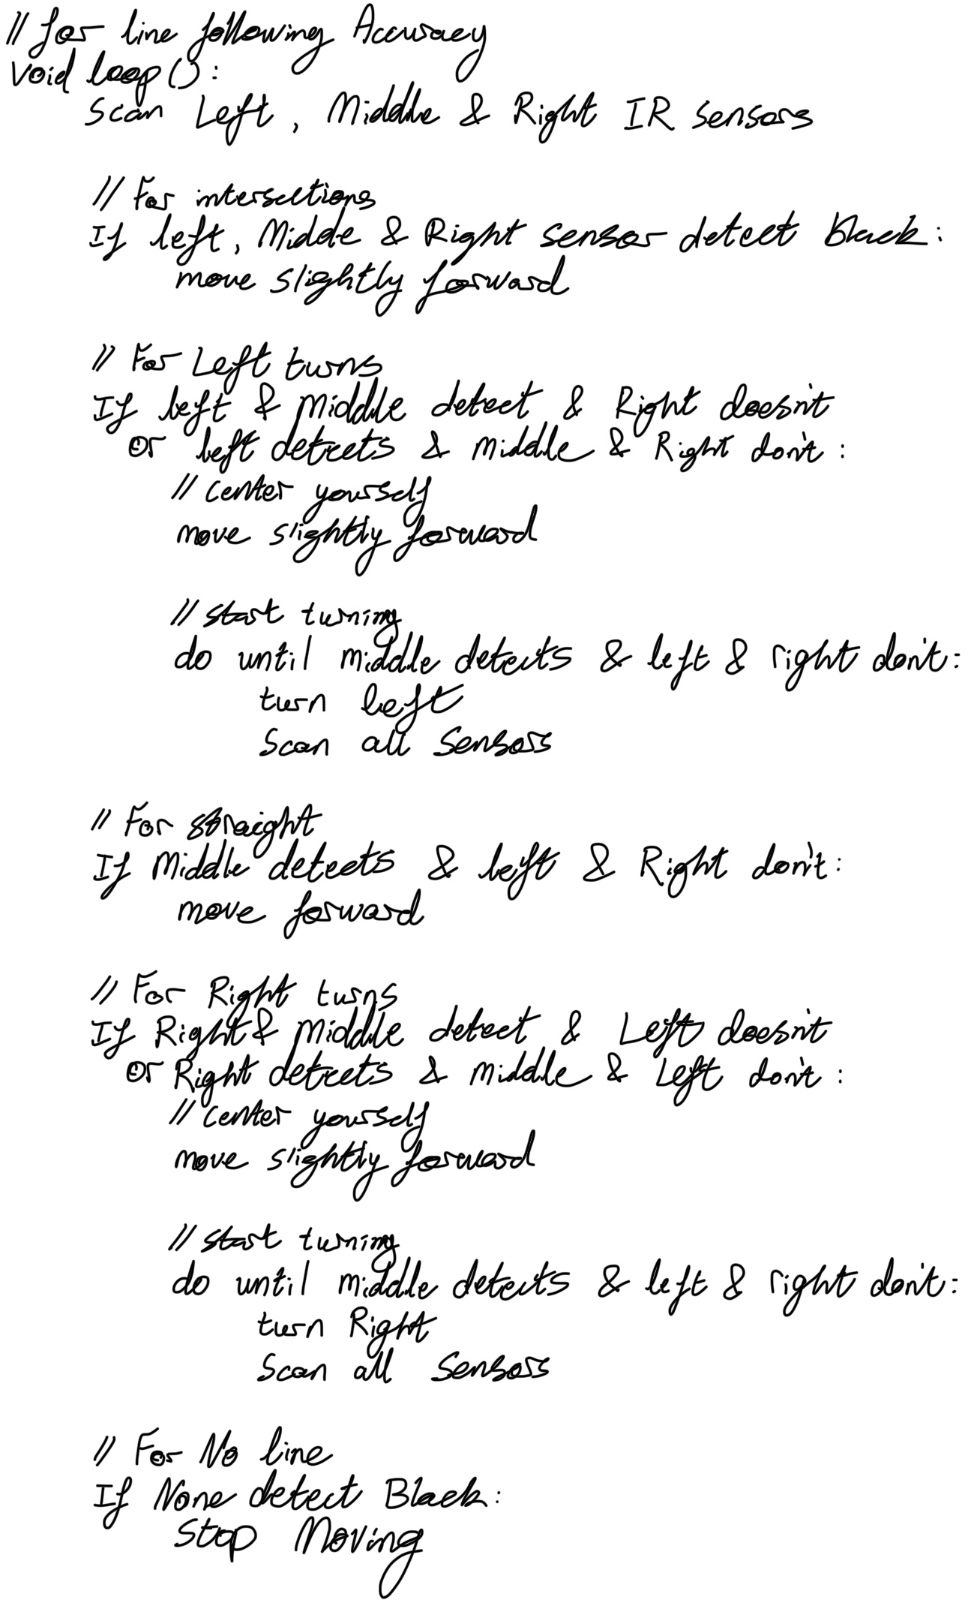 // for line following Accuracy
Void loop():
Scan Left, Middle & Right IR sensors
// For intersections
If left, Midde & Right sensor detect black:
move slightly forward
// For Left turns
If left & Middle detect & Right doesn't
or left detects & middle & Right don't:
// Center yourself
move slightly forward
// Start turning
do until middle detects & left & right don't:
turn left
Scan all Sensors
// For straight
If Middle detects & left & Right don't:
move forward
// For Right turns
If Right & Middle detect & Left doesn't
or Right detects & middle & Left don't:
// Center yourself
move slightly forward
// Start turning
do until middle detects & left & right don't:
turn Right
Scan all Sensors
// For No line
If None detect Black:
Stop Moving